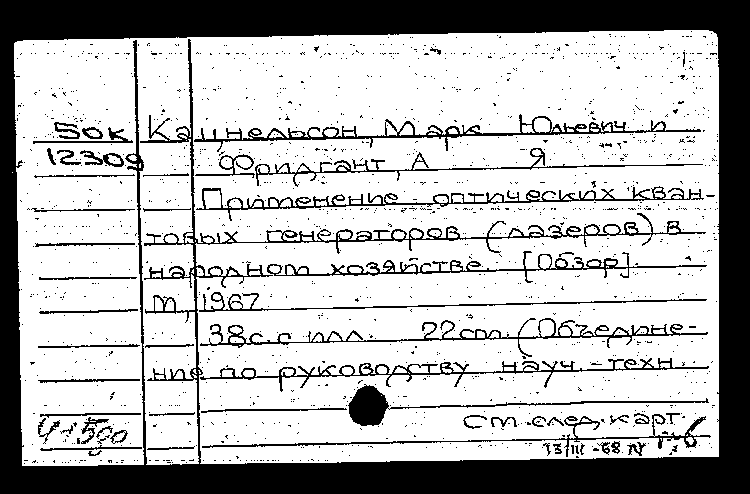 50к Кацнельсон, Марк Юльевич и
12309 Фридгант, А Я
Применение оптических кван-
товых генераторов (лазеров) в
народном хозяйстве. [Обзор].
М, 1967
38с. с илл. 22см. (Объедине-
ние по руководству науч.-техн.
См. след. карт.
13/III -68